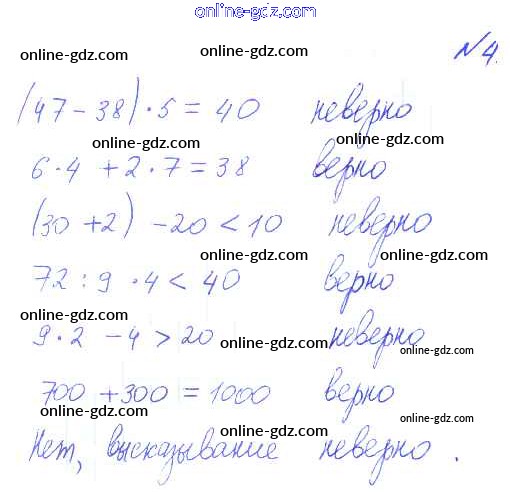 online-gdz.com
online-gdz.com
online-gdz.com
№ 4.
(47 - 38) · 5 = 40 неверно
online-gdz.com
online-gdz.com
6 · 4 + 2 · 7 = 38 верно
online-gdz.com
online-gdz.com
(30 + 2) - 20 < 10 неверно
online-gdz.com
online-gdz.com
72 : 9 · 4 < 40 верно
online-gdz.com
online-gdz.com
9 · 2 - 4 > 20 неверно
online-gdz.com
700 + 300 = 1000 верно
online-gdz.com
online-gdz.com
Нет, высказывание неверно.
online-gdz.com
online-gdz.com